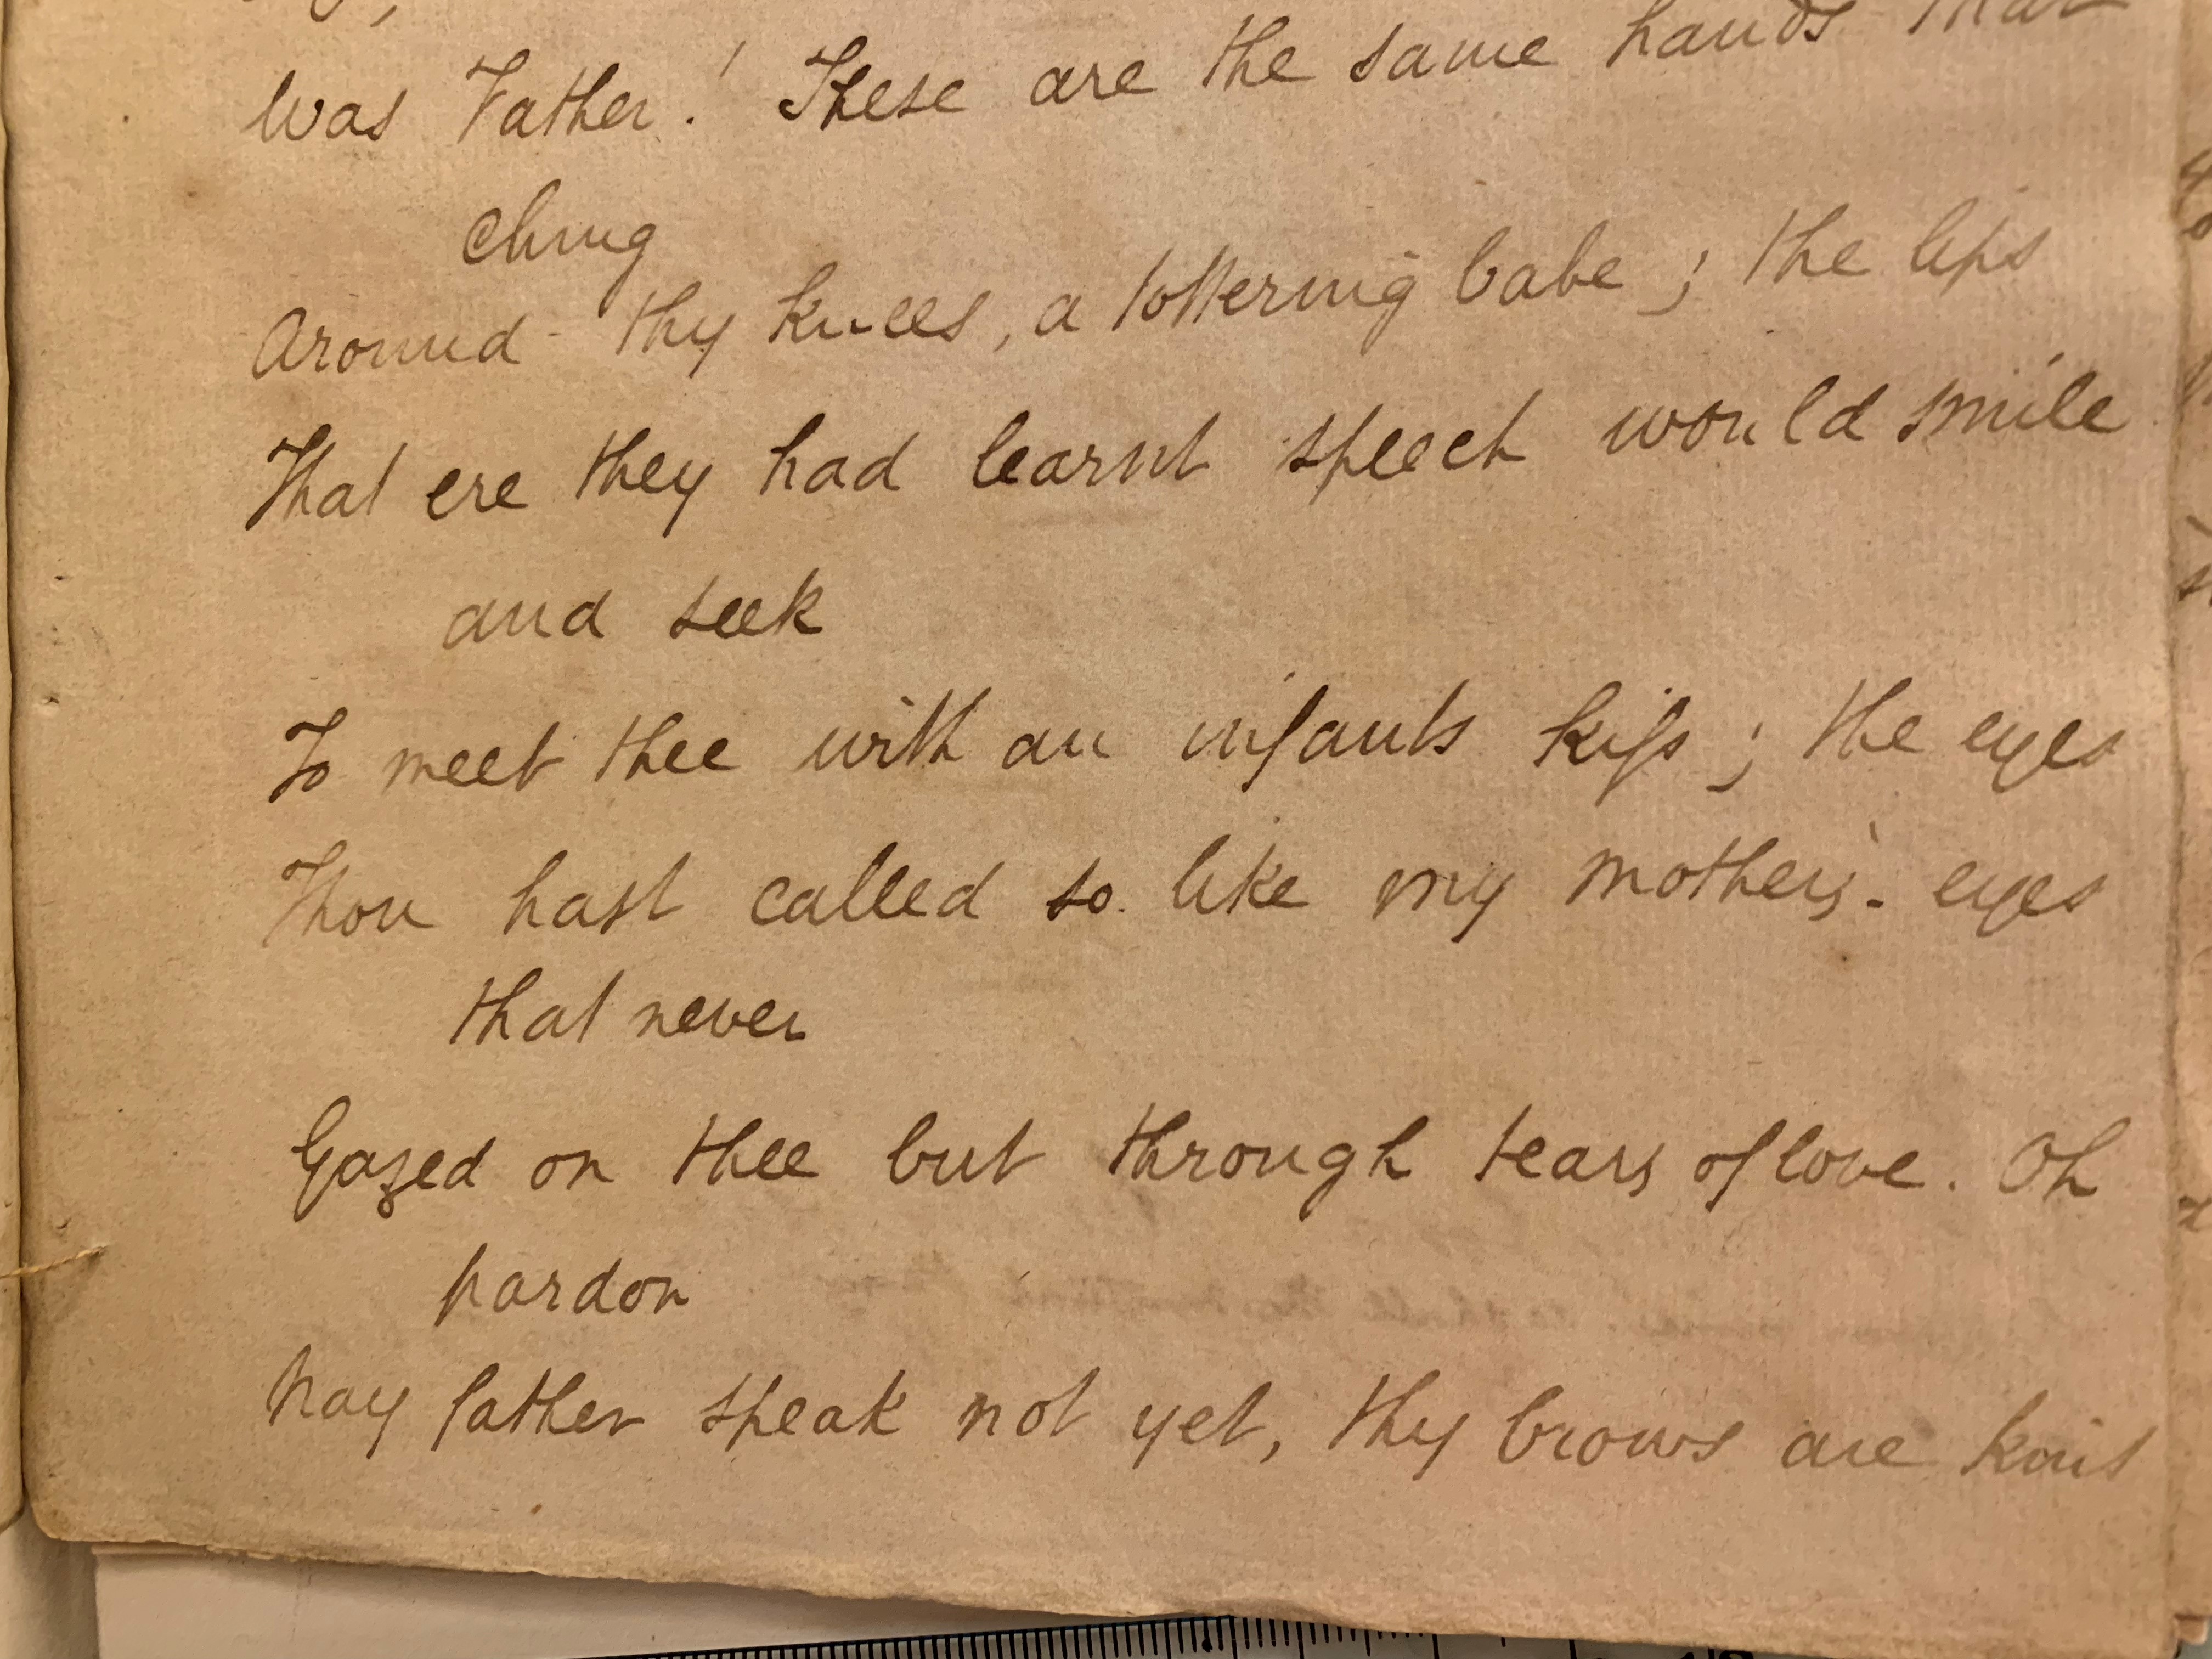 was Father! These are the same hands that
clung
Around thy knees, a tottering babe; the lips
That ere they had learnt speech would smile
and seek
To meet thee with an infants kiſs; the eyes
Thou haſt called so like my mother's - eyes
that never
Gazed on thee but through tears of love. Oh
pardon
Nay father speak not yet, thy brows are knit